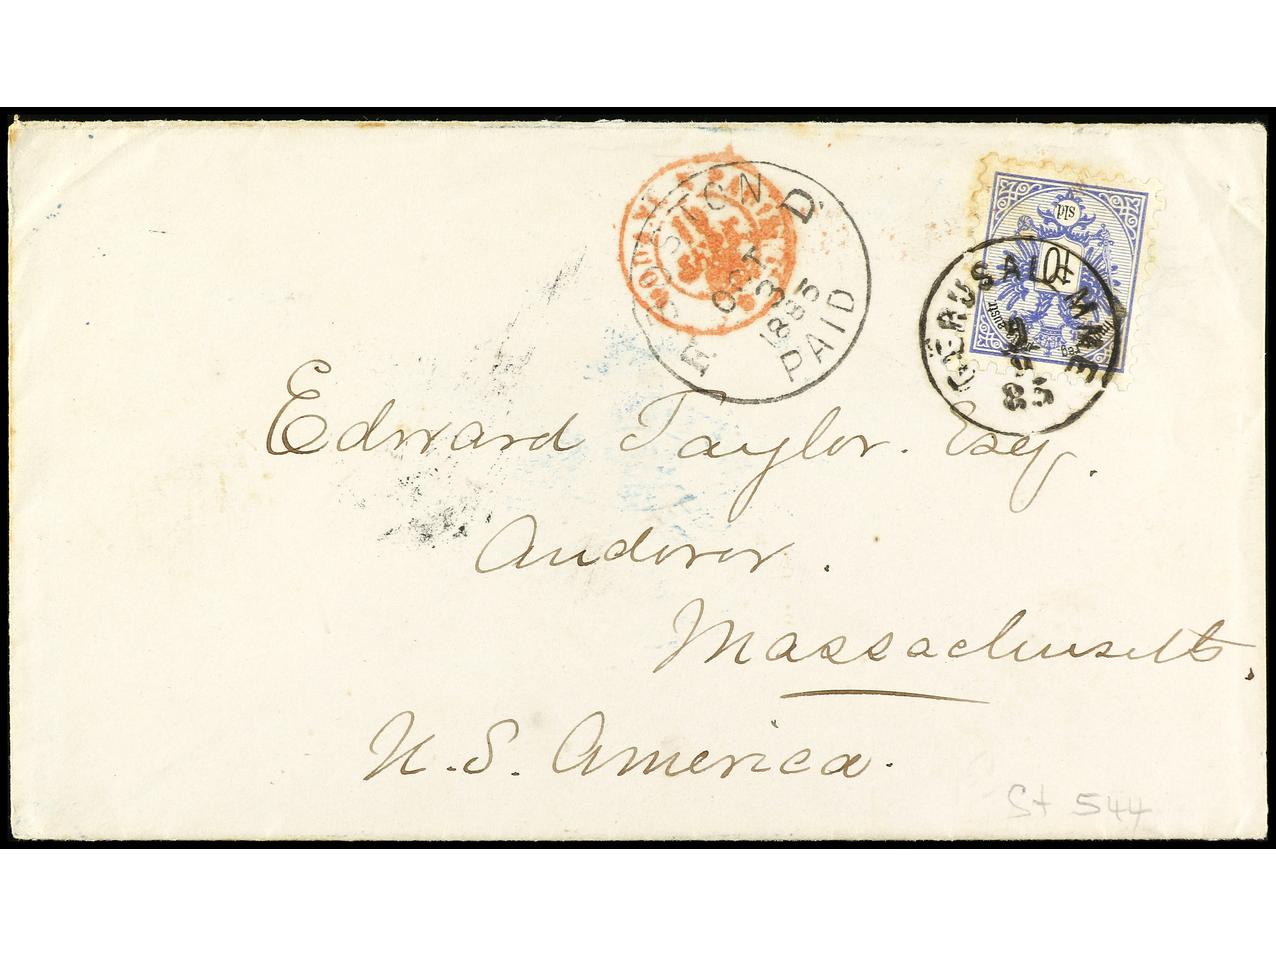 BOSTON
OCT
3
1885
D
PAID
sld
10
GERUSALEMME
85
Edward Taylor. Esq.
Andover.
Massachusetts.
U.S. America.
St 544